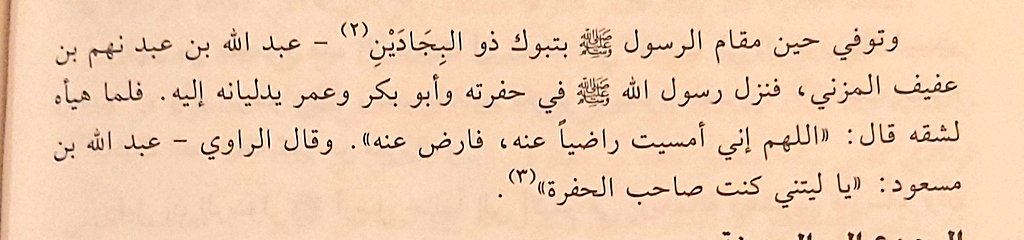 وتوفي حين مقام الرسول ﷺ بتبوك ذو البِجَادَيْنِ(٢) - عبد الله بن عبد نهم بن
عفيف المزني، فنزل رسول الله ﷺ في حفرته وأبو بكر وعمر يدليانه إليه. فلما هيأه
لشقه قال: «اللهم إني أمسيت راضياً عنه، فارض عنه». وقال الراوي - عبد الله بن
مسعود: «يا ليتني كنت صاحب الحفرة»(٣).